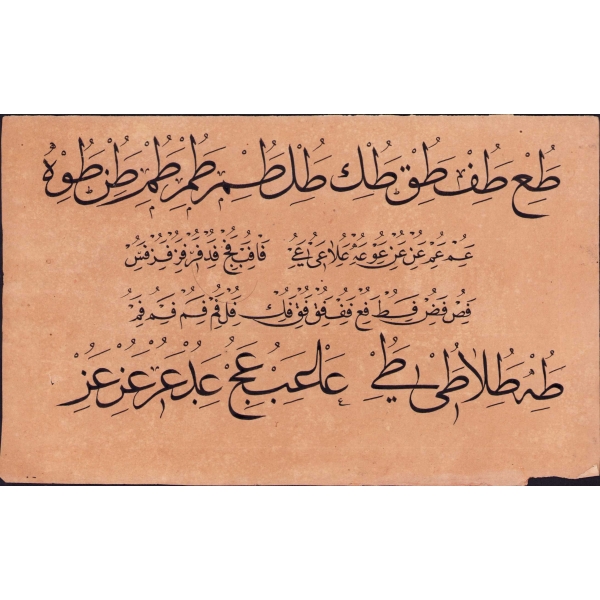 طُعْ طُفْ طُقْ طُكْ طُلْ طُمْ طُمْ طُمْ طُنْ طُوْ هُ
عُمْ عُمْ عُنْ عُنْ عُوْ عُهُ عُلَا عُىْ عُےْ فَا فُبْ فُجْ فُدْ فُرْ فُسْ
فُصْ فُضْ فُطْ فُعْ فُفْ فُقْ فُقْ فُكْ فُلْ فُمْ فُمْ فُمْ فُمْ
طُهْ طُلَا طُىْ طُےْ عَا عُبْ عُجْ عُدْ عُرْ عُزْ عُزْ